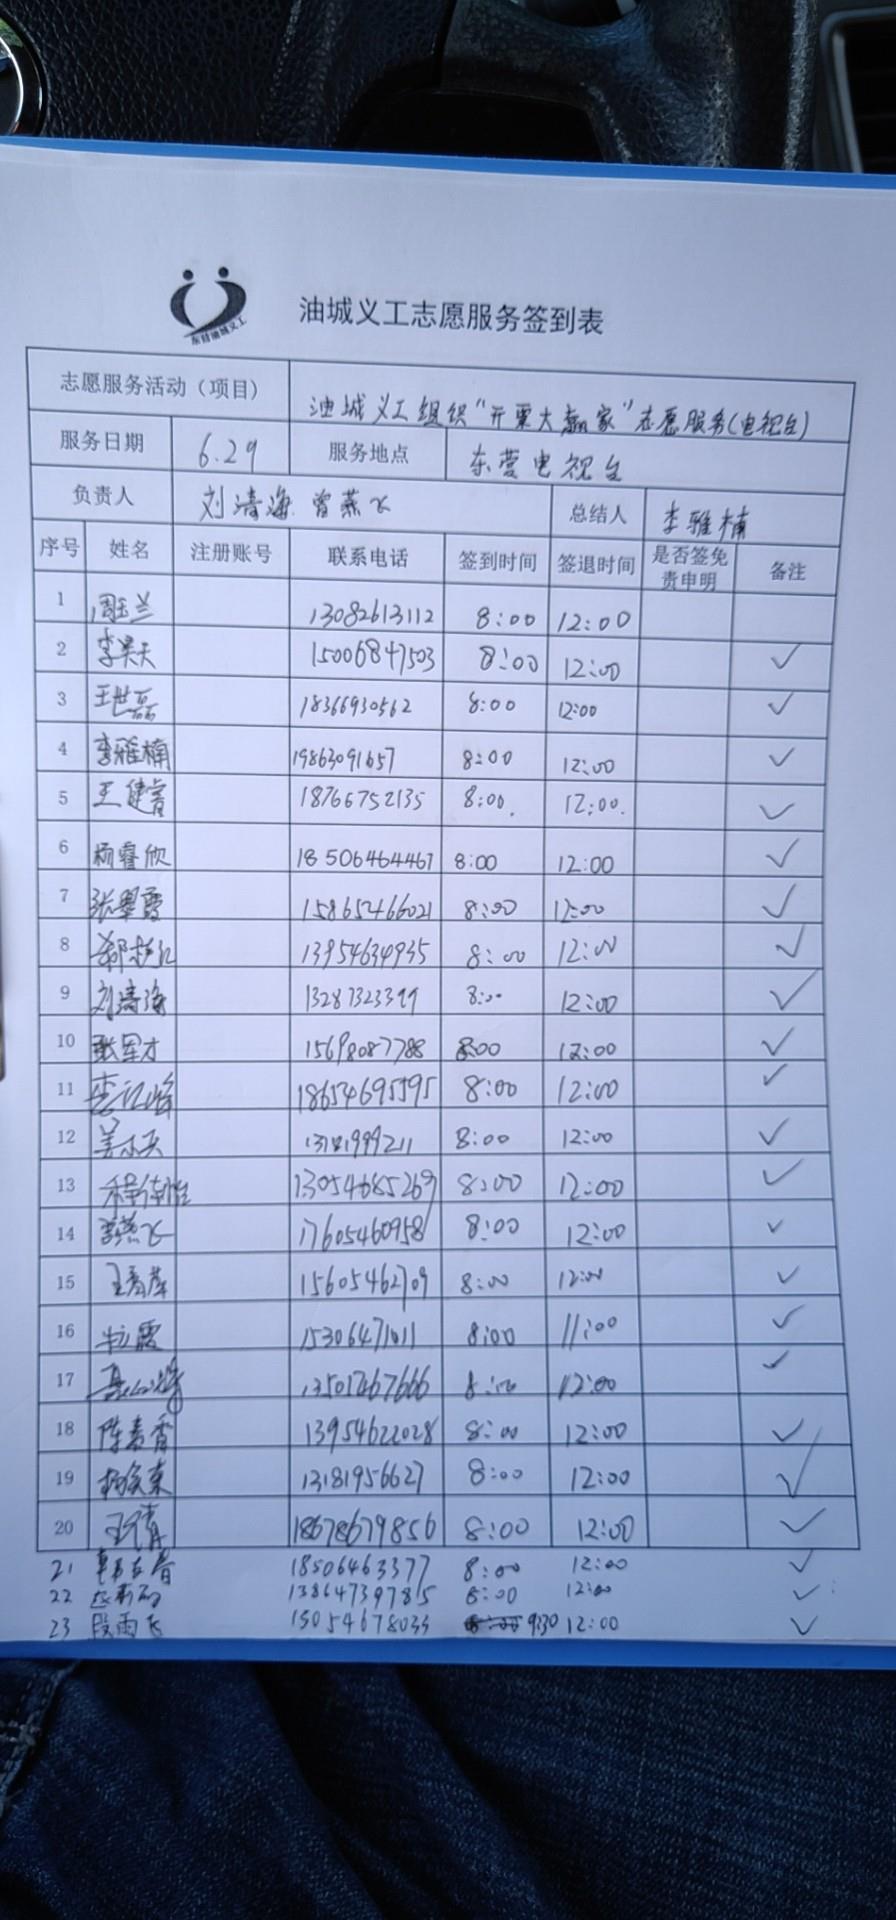 东营油城义工
油城义工志愿服务签到表
志愿服务活动（项目） 油城义工组织“开票大赢家”志愿服务（电视台）
服务日期 6.29 服务地点 东营电视台
负责人 刘涛海 曾燕飞 总结人 李雅楠
序号 姓名 注册账号 联系电话 签到时间 签退时间 是否签免责申明 备注
1 周玉兰 13082613112 8:00 12:00
2 李昊天 15006847503 8:00 12:00 ✓
3 王世磊 18366930562 8:00 12:00 ✓
4 李雅楠 19863091657 8:00 12:00 ✓
5 王健睿 18766752135 8:00. 12:00. ✓
6 杨睿欣 18506464467 8:00 12:00 ✓
7 张翠霞 15865466021 8:00 12:00 ✓
8 13954634935 8:00 12:00 ✓
9 刘涛海 13287323399 8:00 12:00 ✓
10 张军才 15698087788 8:00 12:00 ✓
11 18654695595 8:00 12:00 ✓
12 8:00 12:00 ✓
13 13054685269 8:00 12:00 ✓
14 曾燕飞 17605460958 8:00 12:00 ✓
15 15605462709 8:00 12:00 ✓
16 15306471011 8:00 11:00 ✓
17 13501267666 8:00 12:00 ✓
18 陈春香 13954622028 8:00 12:00 ✓
19 13181956627 8:00 12:00 ✓
20 18678679856 8:00 12:00 ✓
21 18506463377 8:00 12:00 ✓
22 13864739785 8:00 12:00 ✓
23 段雨飞 15054678033 9:30 12:00 ✓